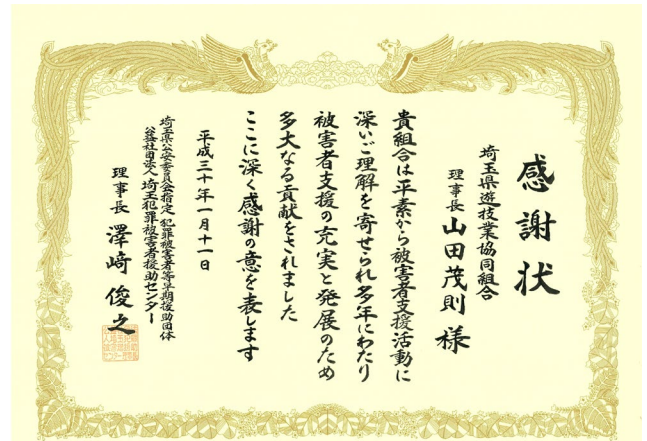 感謝状
埼玉県遊技業協同組合
理事長 山田茂則 様
貴組合は平素から被害者支援活動に
深いご理解を寄せられ多年にわたり
被害者支援の充実と発展のため
多大なる貢献をされました
ここに深く感謝の意を表します
平成三十年一月十一日
埼玉県公安委員会指定 犯罪被害者等早期援助団体
公益社団法人 埼玉犯罪被害者援助センター
理事長 澤﨑俊之